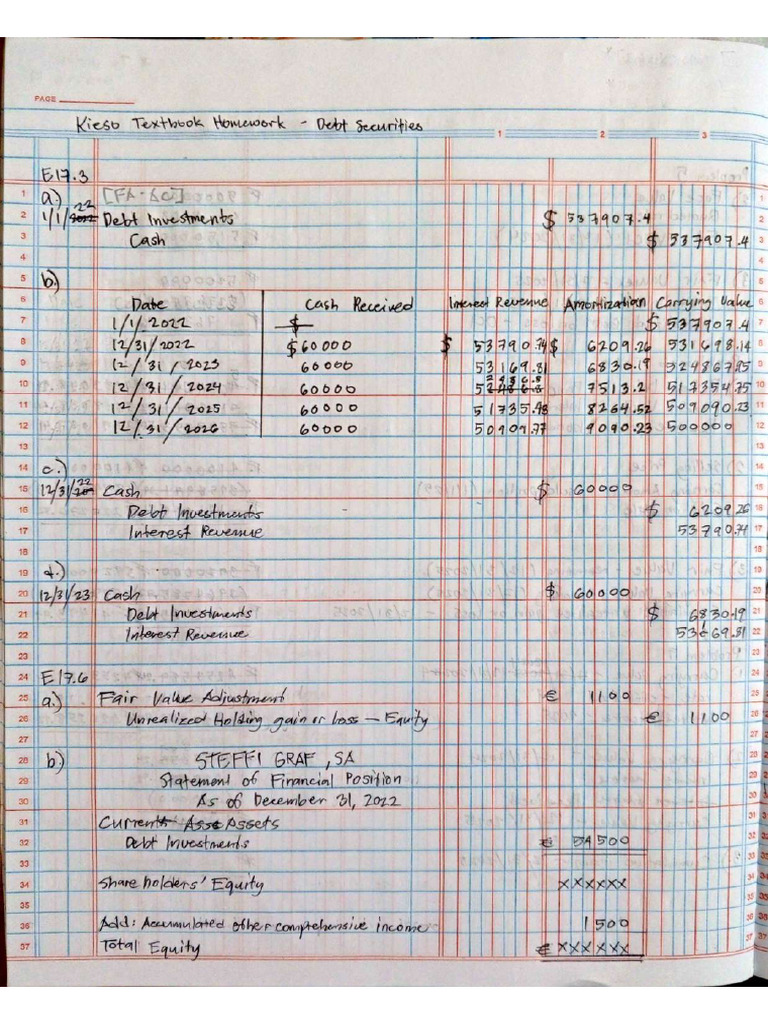 PAGE
Kieso Textbook Homework - Debt Securities
1 2 3
E17.3
1 a.) [FA-AC] 1
2 1/1/22 Debt Investments $ 537907.4 2
3 Cash $ 537907.4 3
4
5 b.) 5
6 Date Cash Received Interest Revenue Amortization Carrying Value 6
7 1/1/2022 $ $ 537907.4 7
8 12/31/2022 $60000 $ 53790.74 $ 6209.26 531698.14 8
9 12/31/2023 60000 53169.81 6830.19 524867.95 9
10 12/31/2024 60000 52486.8 7513.2 517354.75 10
11 12/31/2025 60000 51735.48 8264.52 509090.23 11
12 12/31/2026 60000 50909.77 9090.23 500000 12
13
14 c.) 14
15 12/31/22 Cash $ 60000 15
16 Debt Investments $ 6209.26 16
17 Interest Revenue 53790.74 17
18 18
19 d.) 19
20 12/31/23 Cash $ 60000 20
21 Debt Investments $ 6830.19 21
22 Interest Revenue 53169.81 22
23
24 E17.6 24
25 a.) Fair Value Adjustment € 1100 25
26 Unrealized Holding gain or loss - Equity € 1100 26
27
28 b.) STEFFI GRAF, SA
29 Statement of Financial Position
30 As of December 31, 2022
31 Current Assets
32 Debt Investments € 54500
33
34 Shareholders' Equity xxxxxx
35
36 Add: Accumulated other comprehensive income 1500
37 Total Equity € xxxxxx 37